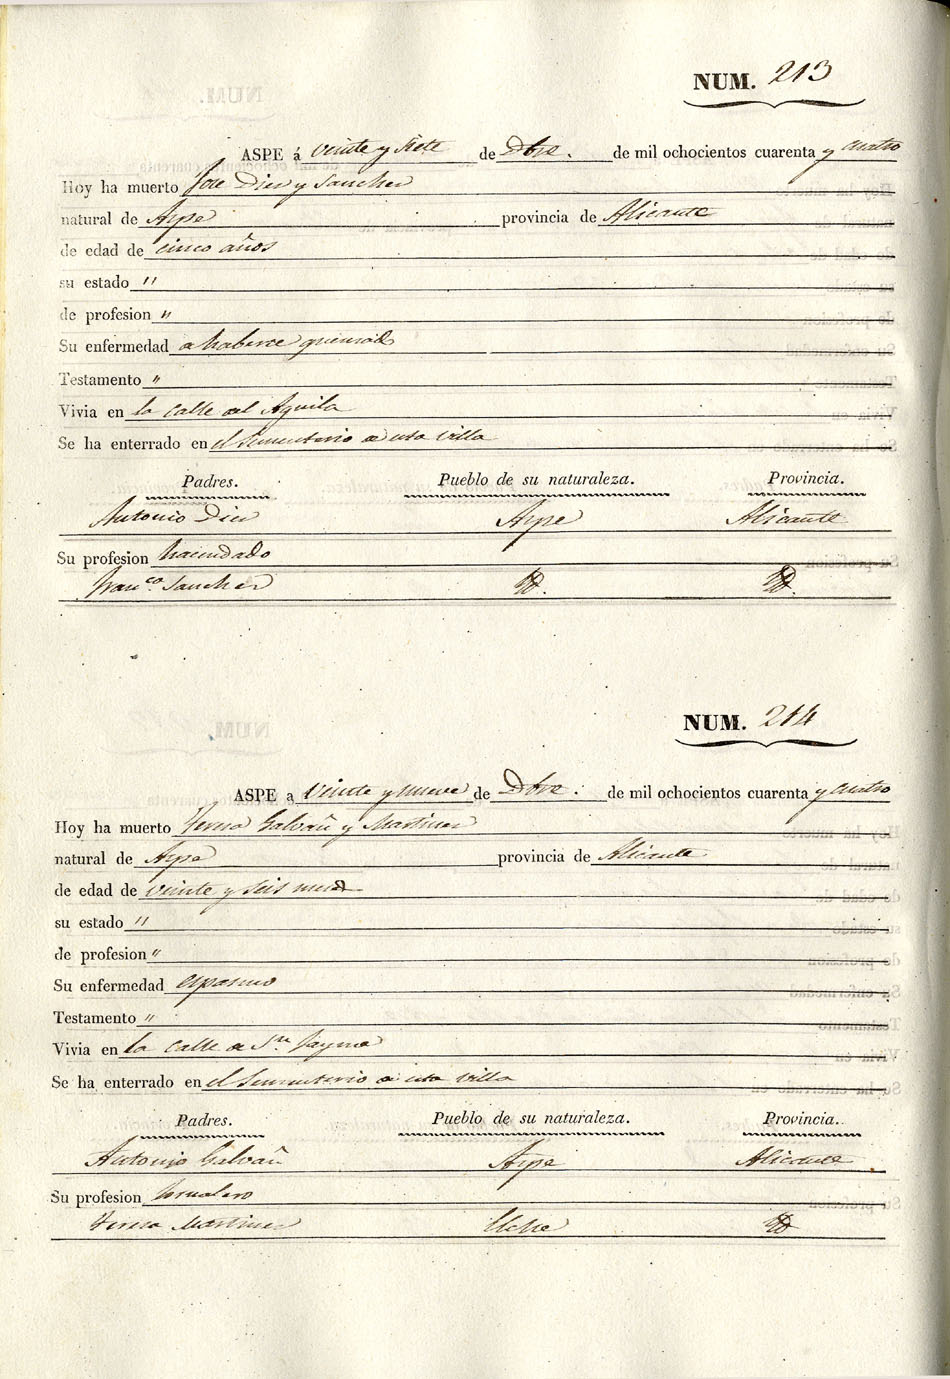 NUM. 213
ASPE á veinte y siete de Dbre. de mil ochocientos cuarenta y cuatro
Hoy ha muerto Jose Dier y Sancher
natural de Aspe provincia de Alicante
de edad de cinco años
su estado "
de profesion "
Su enfermedad a haberce quemado
Testamento "
Vivia en la calle del Aguila
Se ha enterrado en el Sementerio de esta villa
Padres. Pueblo de su naturaleza. Provincia.
Antonio Dier Aspe Alicante
Su profesion hacendado
Franco. Sancher Id. Id.
NUM. 214
ASPE a veinte y nueve de Dbre. de mil ochocientos cuarenta y cuatro
Hoy ha muerto Teresa Galvañ y Martiner
natural de Aspe provincia de Alicante
de edad de veinte y seis meses
su estado "
de profesion "
Su enfermedad espasmo
Testamento "
Vivia en la calle de Sn. Jayme
Se ha enterrado en el Sementerio de esta villa
Padres. Pueblo de su naturaleza. Provincia.
Antonio Galvañ Aspe Alicante
Su profesion Jornalero
Teresa Martiner Elche Id